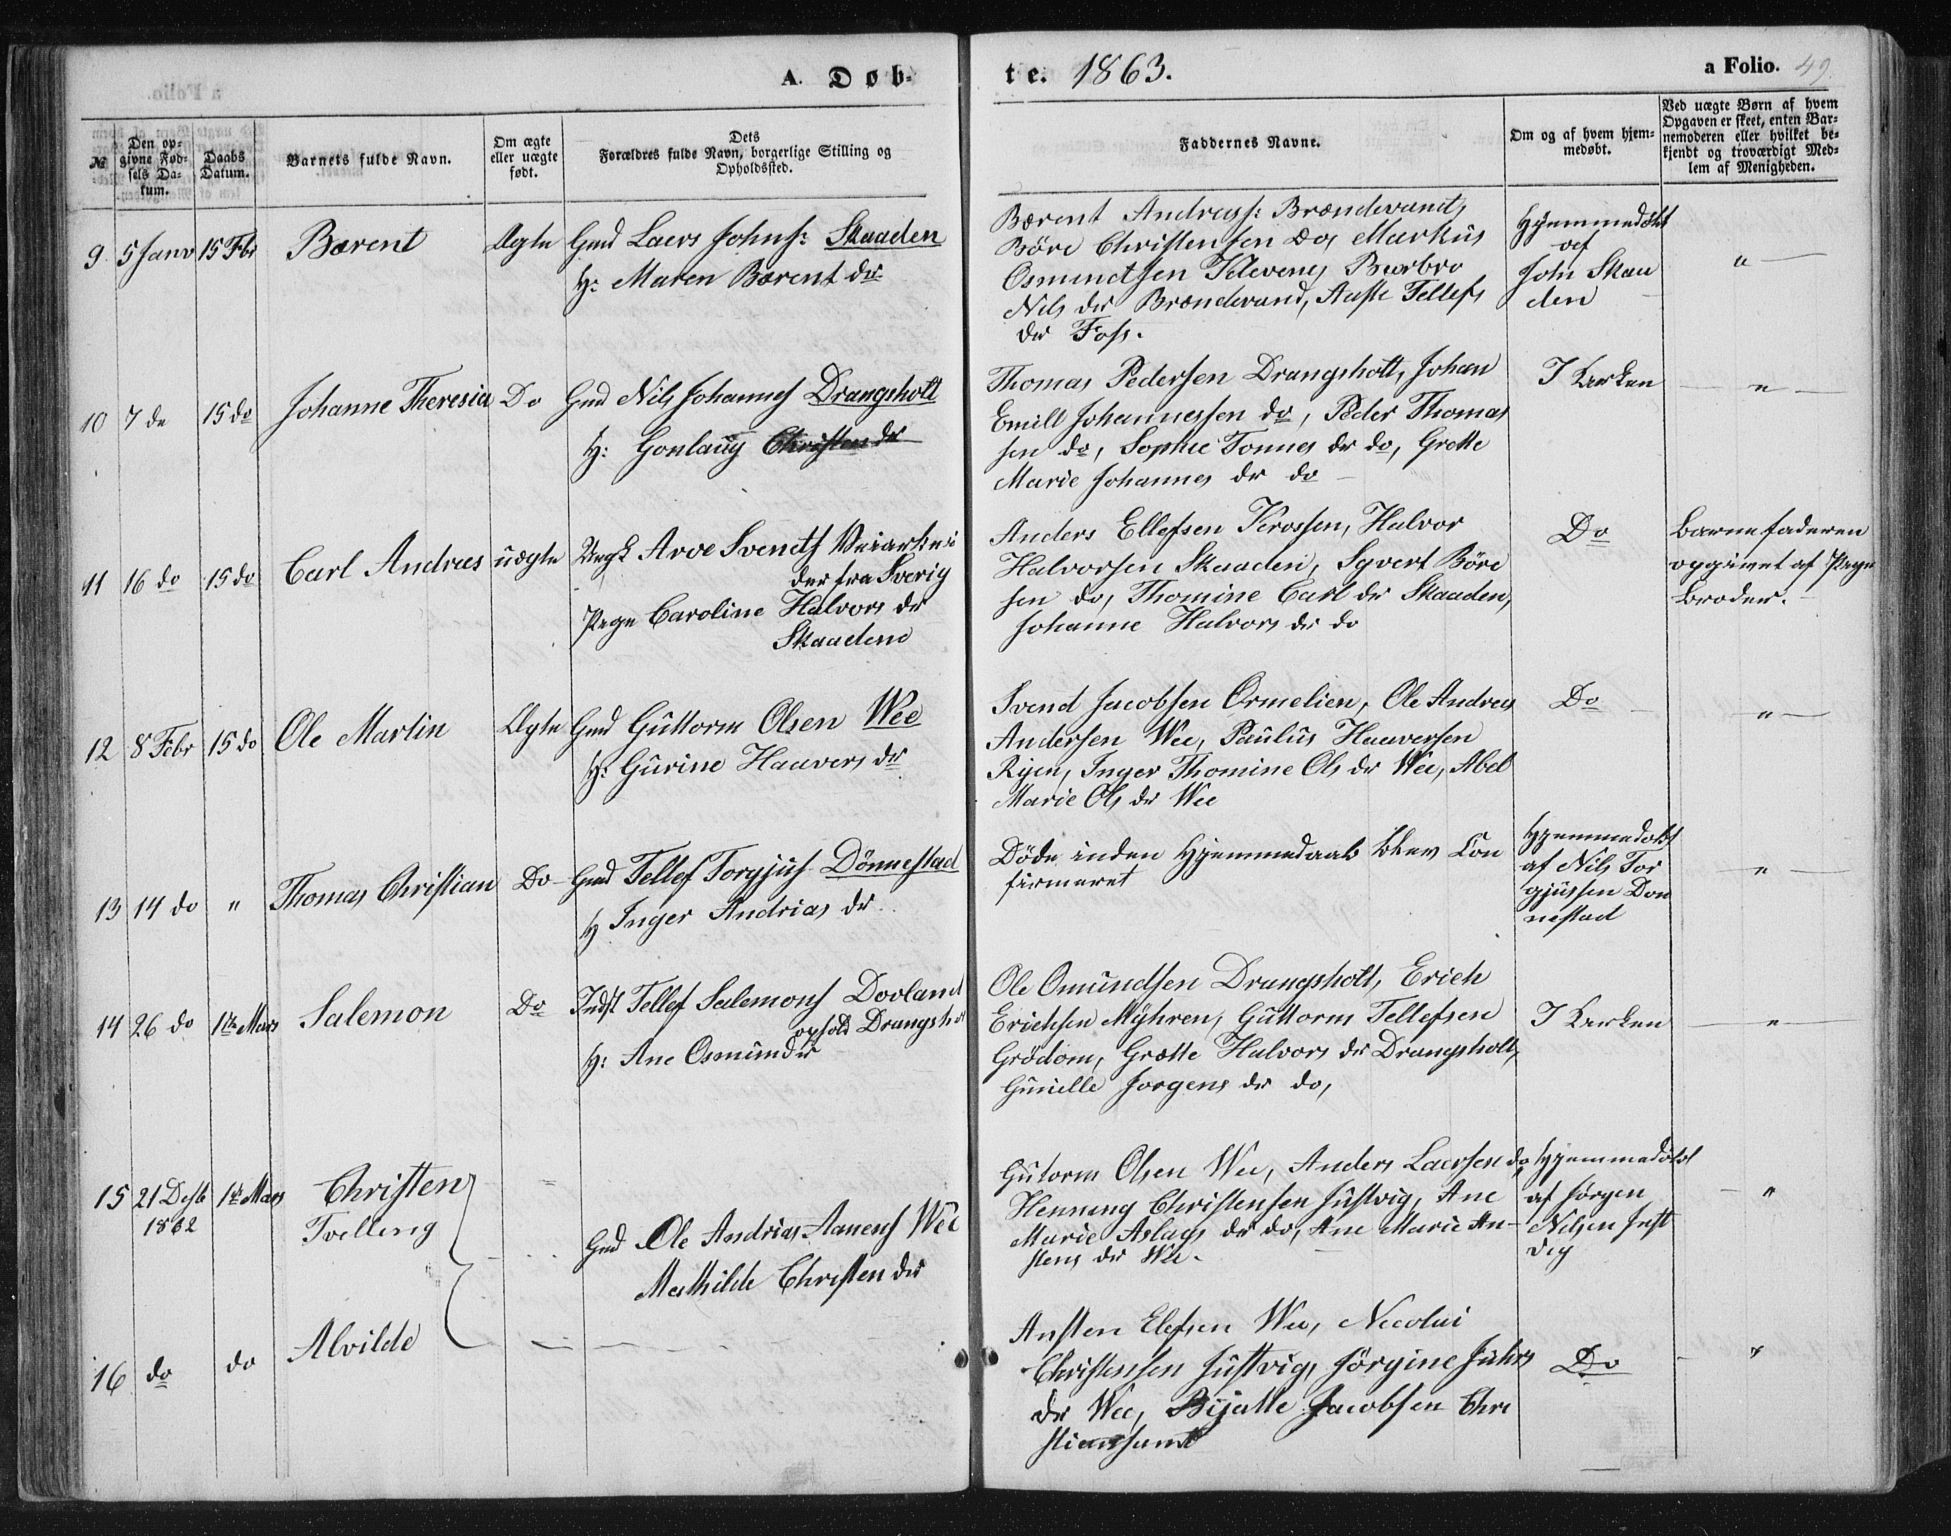 A. Døb-
te. 1863.
a Folio. 49.
№
Den op-
givne Fød-
sels Da-
tum.
Daabs
Datum.
Barnets fulde Navn.
Om ægte
eller uægte
født.
Dets
Forældres fulde Navn, borgerlige Stilling og
Opholdssted.
Faddernes Navne.
Om og af hvem hjem-
medøbt.
Ved uægte Børn af hvem
Opgaven er skeet, enten Bar-
nemoderen eller hvilket be-
kjendt og troværdigt Med-
lem af Menigheden.
9 5 Janv 15 Febr Bærent Ægte Gmd Laers Johns: Skaaden
H: Maren Bærent dr
Bærent Andreass: Brændevand,
Böre Christensen og Markus
Osmundsen
Nils dr Brændevand, Aaste Tellefs
dr Foss.
Hjemmedöbt
af
John Skaa
den
"
10 7 do 15 do Johanne Theresia Do Gmd Nils Johannes Drangsholt
H: Gonlaug Christen dr
Thomas Pedersen Drangsholt, Johan
Emill Johannessen do, Peder Thomas
sen do, Sophie Tonnes dr do, Grette
Marie Johannes dr do
I Kirken
"
11 16 do 15 do Carl Andreas uægte Ungk Arve Svends Veiarbei
der fra Sverig
Pige Caroline Halvors dr
Skaaden
Anders Ellefsen Krossen, Halvor
Halvorsen Skaaden, Syvert Böre
sen do, Thomine Carl dr Skaaden,
Johanne Halvors dr do
Do
Barnefaderen
opgivet af Pigens
Broder.
12 8 Febr 15 do Ole Martin Ægte Gmd Guttorm Olsen Wee
H: Gurine Haavers dr
Svend Jacobsen Ormelien, Ole Andreas
Andersen Wee, Paulus Haaversen
Rijen, Inger Thomine Ols dr Wee, Abel
Marie Ols dr Wee
Do
"
13 14 do " Thomas Christian Do Gmd Tellef Torgjus Dönnestad
H Inger Andrias dr
Döde inden Hjemmedaab blev Con
firmeret
Hjemmedöbt
af Nils Tor
gjussen Dön
nestad
"
14 26 do 1ste Mars Salemon Do Indst Tellef Salemons Dovland
ophold Drangsholt
H: Ane Osmund dr
Ole Omundsen Drangsholt, Erich
Erichsen Myhren, Guttorm Tellefsen
Grödom, Grætte Halvors dr Drangsholt,
Gunille Jorgens dr do,
I Kirken
"
15 21 Desb 1ste Mars Christen
1862
Tvelling
Gmd Ole Andrias Aanens Wee
Mathilde Christen dr
Gutorm Olsen Wee, Anders Laersen do,
Henning Christensen Justvig, Ane
Marie Aslags dr do, Ane Marie An-
stens dr Wee.
Hjemmedöbt
af Jörgen
Nilsen Just
vig
"
16 do do Alvilde
Ansten Elefsen Wee, Necolai
Christensen Justvig, Jörgine Juhrs
dr Wee, Bijatte Jacobsen Chri
stianssand
Do
"